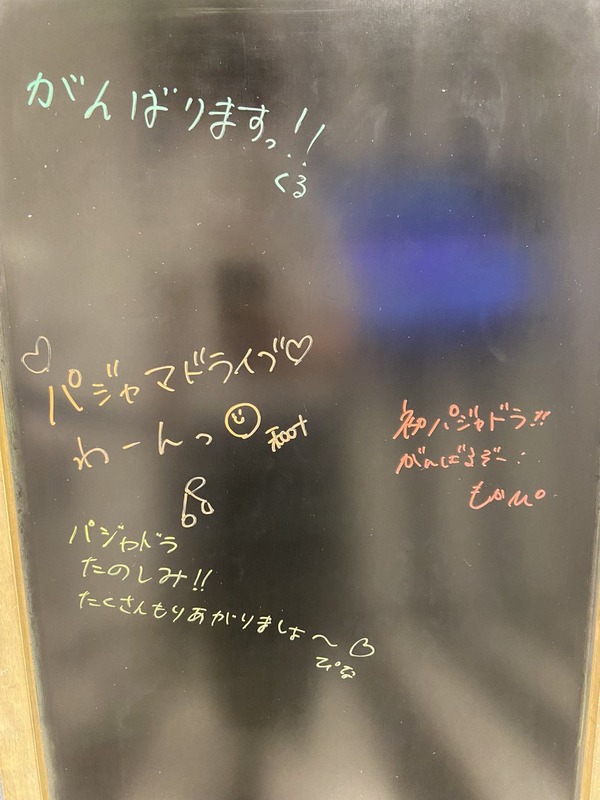 がんばりますっ!!
くる
パジャマドライブ
わーんっ
初パジャドラ!!
がんばるぞー!
パジャドラ
たのしみ!!
たくさんもりあがりましょ〜
ぴな